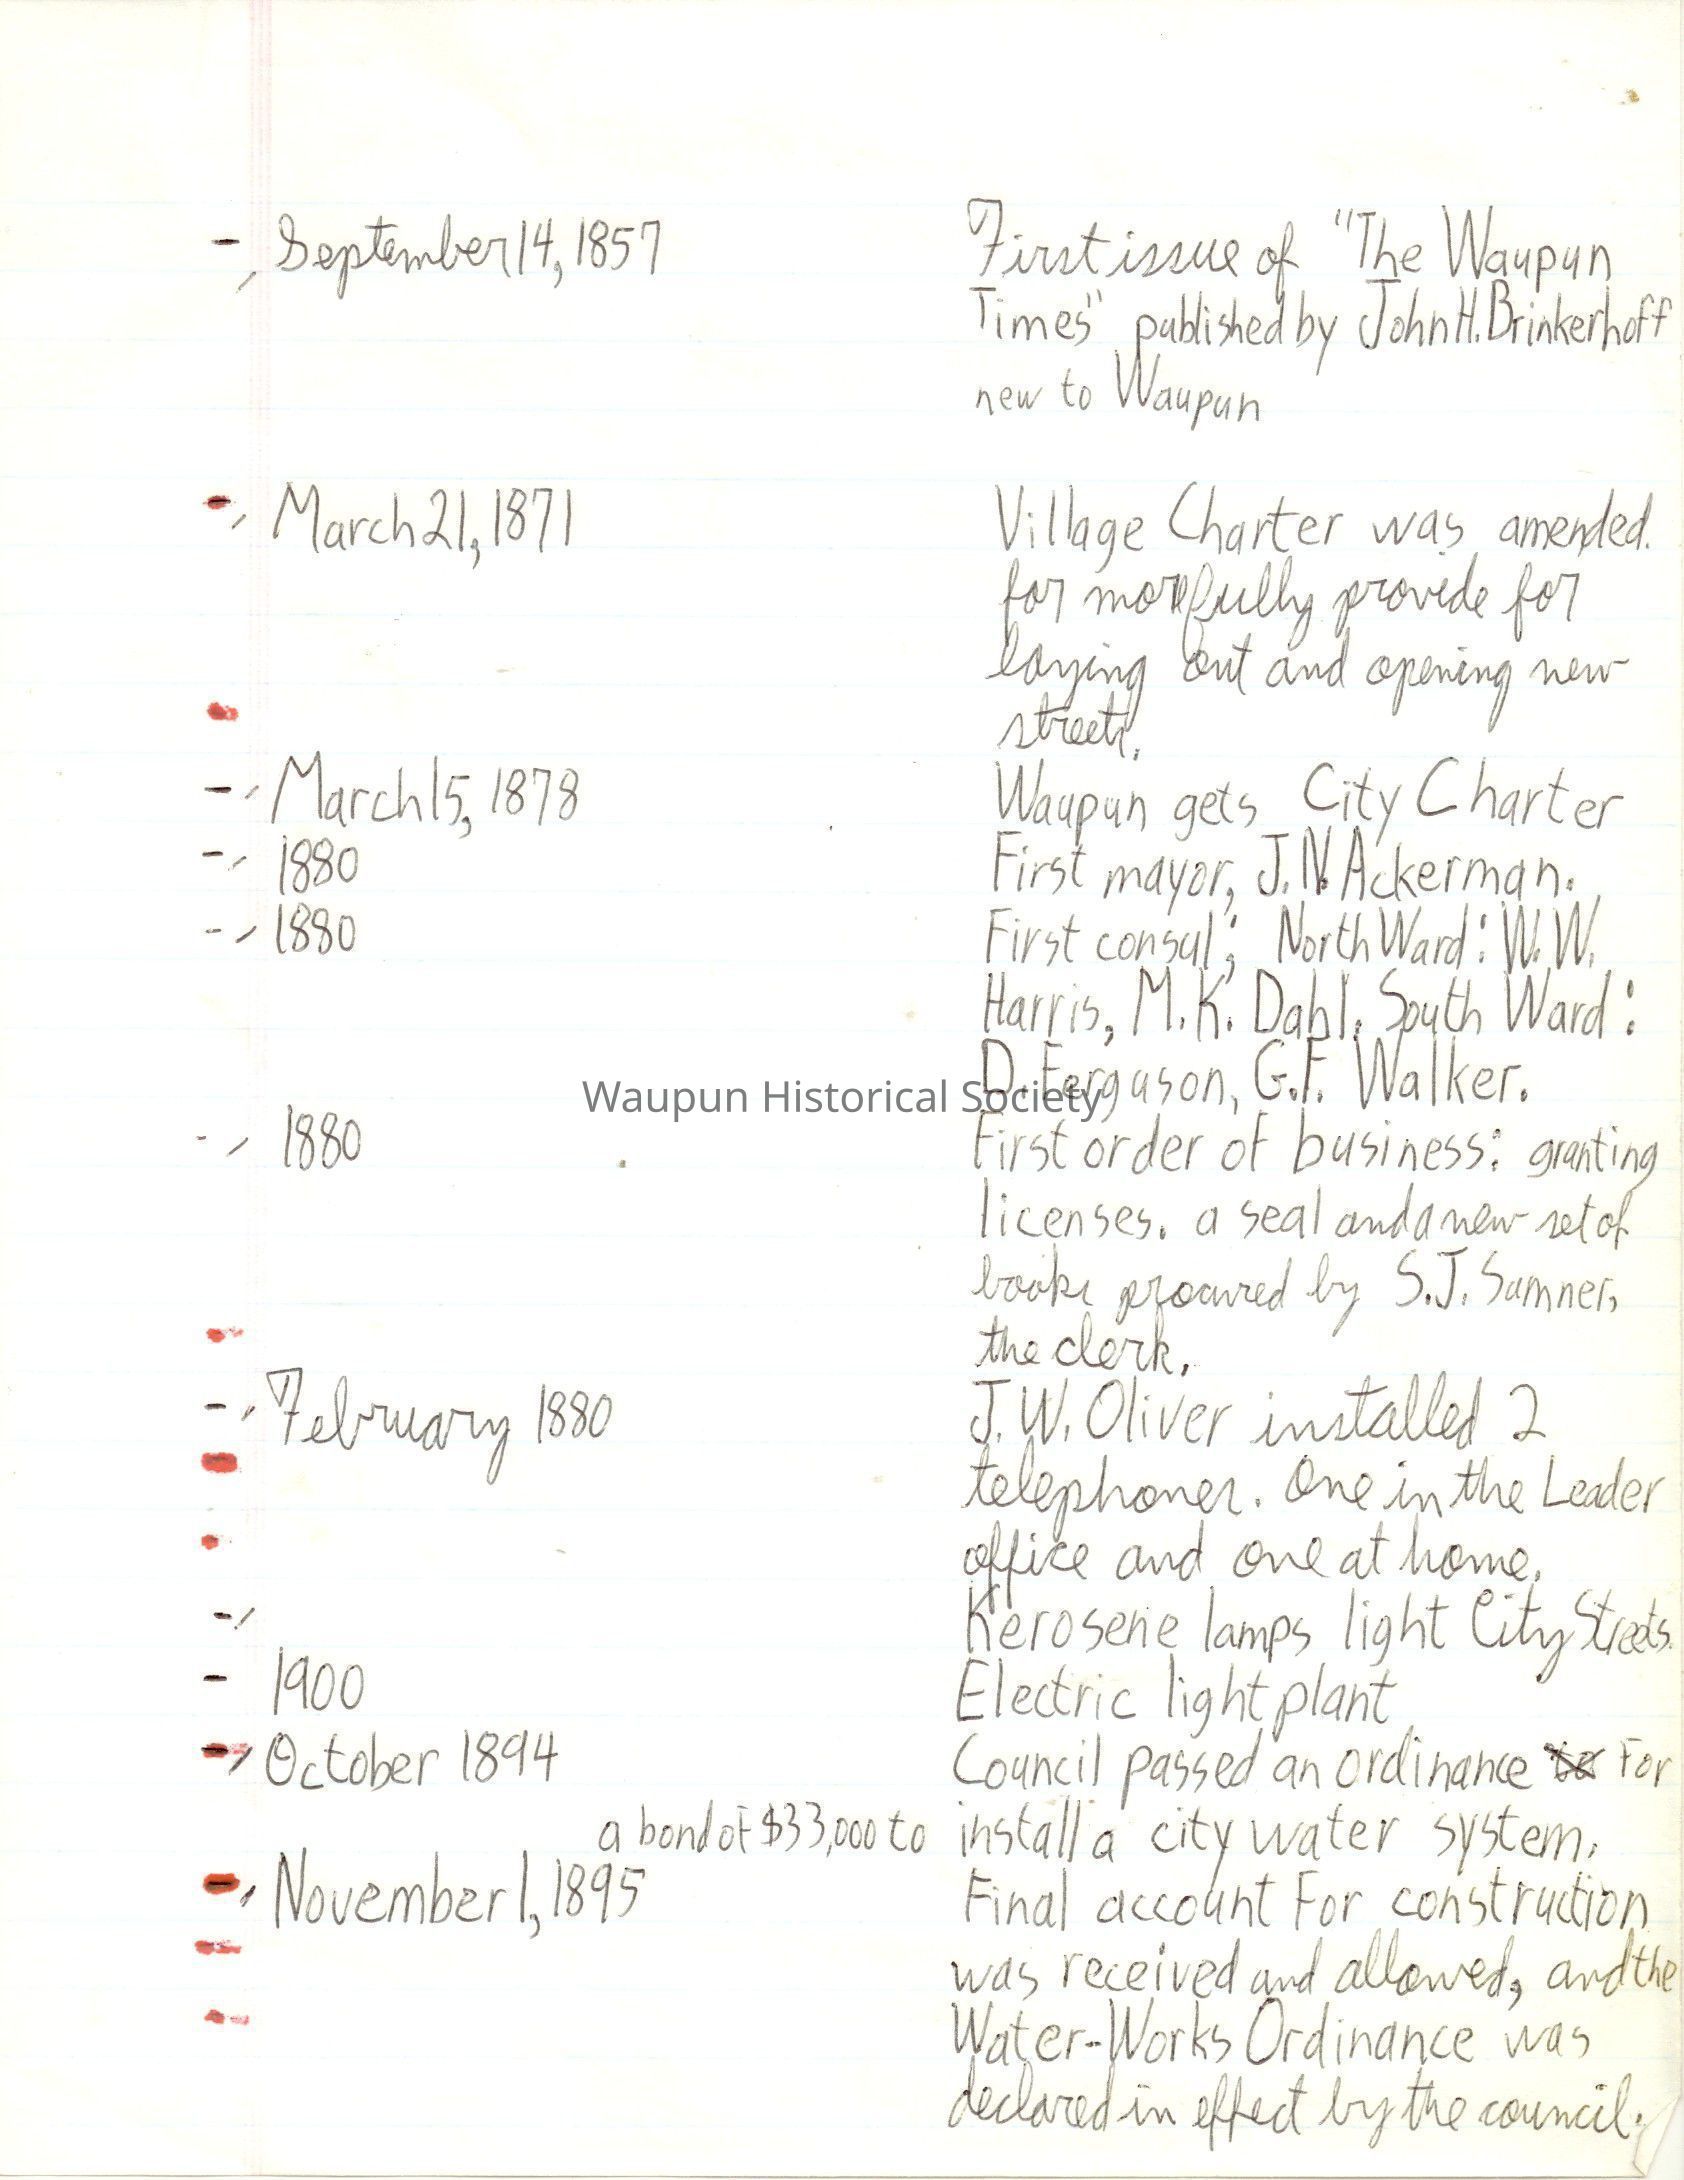 - September 14, 1857 First issue of "The Waupun
Times" published by John H. Brinkerhoff
new to Waupun
- March 21, 1871 Village Charter was amended.
for more fully provide for
laying out and opening new
streets.
- March 15, 1878 Waupun gets City Charter
- 1880 First mayor, J.N. Ackerman.
- 1880 First consul; North Ward: W.W.
Harris, M.K. Dahl. South Ward:
D. Ferguson, G.F. Walker.
Waupun Historical Society
- 1880 First order of business: granting
licenses. a seal and a new set of
books procured by S.J. Sumner,
the clerk.
- February 1880 J.W. Oliver installed 2
telephones. One in the Leader
office and one at home.
- Kerosene lamps light City Streets.
- 1900 Electric light plant
- October 1894 Council passed an ordinance to For
a bond of $33,000 to install a city water system.
- November 1, 1895 Final account For construction
was received and allowed, and the
Water-Works Ordinance was
declared in effect by the council.